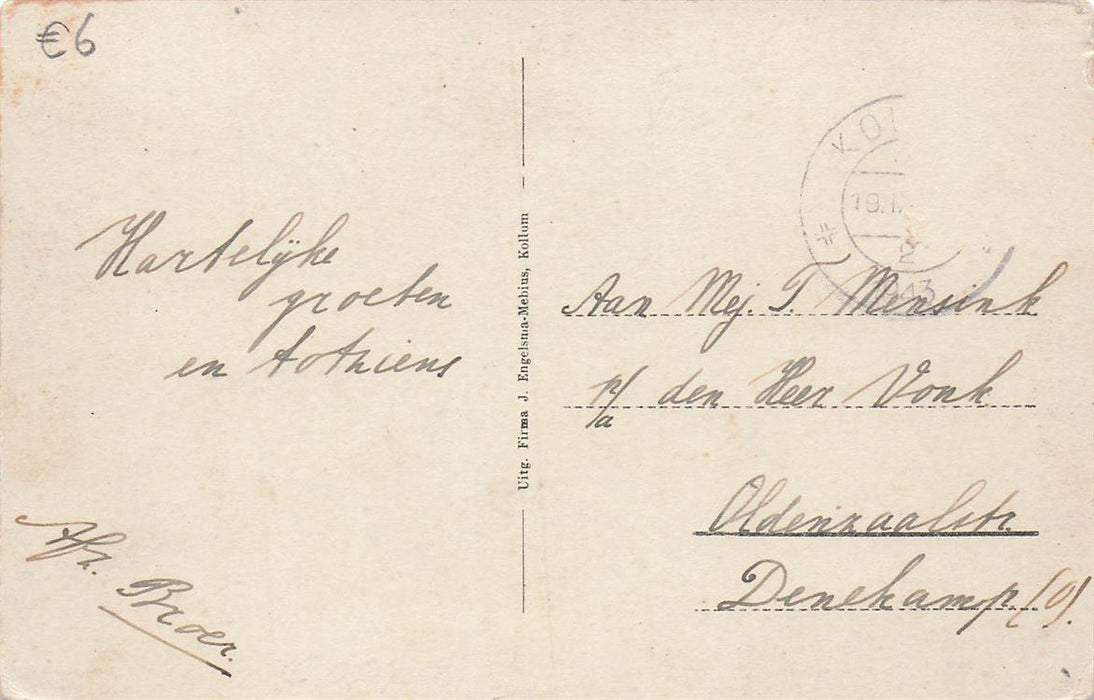 €6
Hartelijke
groeten
en tot ziens
Afz. Broer.
Uitg. Firma J. Engelsma-Mebius, Kollum
KO
19.I
2
1943
Aan Mej. T. Mensink
p/a den Heer Vonk
Oldenzaalstr.
Denekamp. (O).